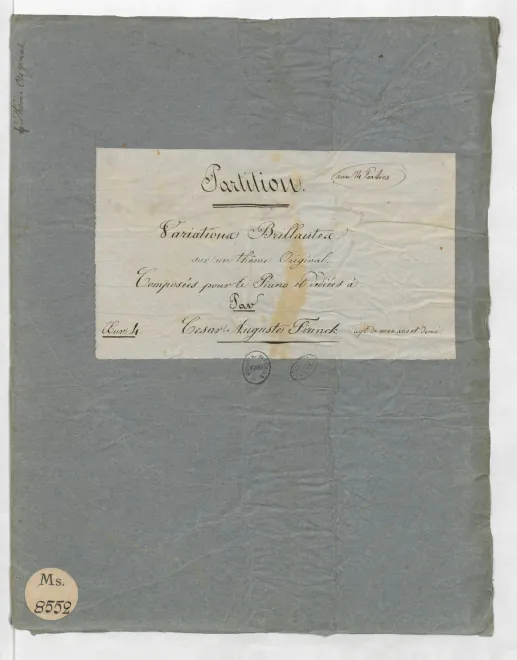 Partition.
Variations Brillantes
sur un thème Original.
Composées pour le Piano et dédiées à
Par
Œuv: 4 Cesar Auguste Franck agé de onze ans et demi
Ms.
8552